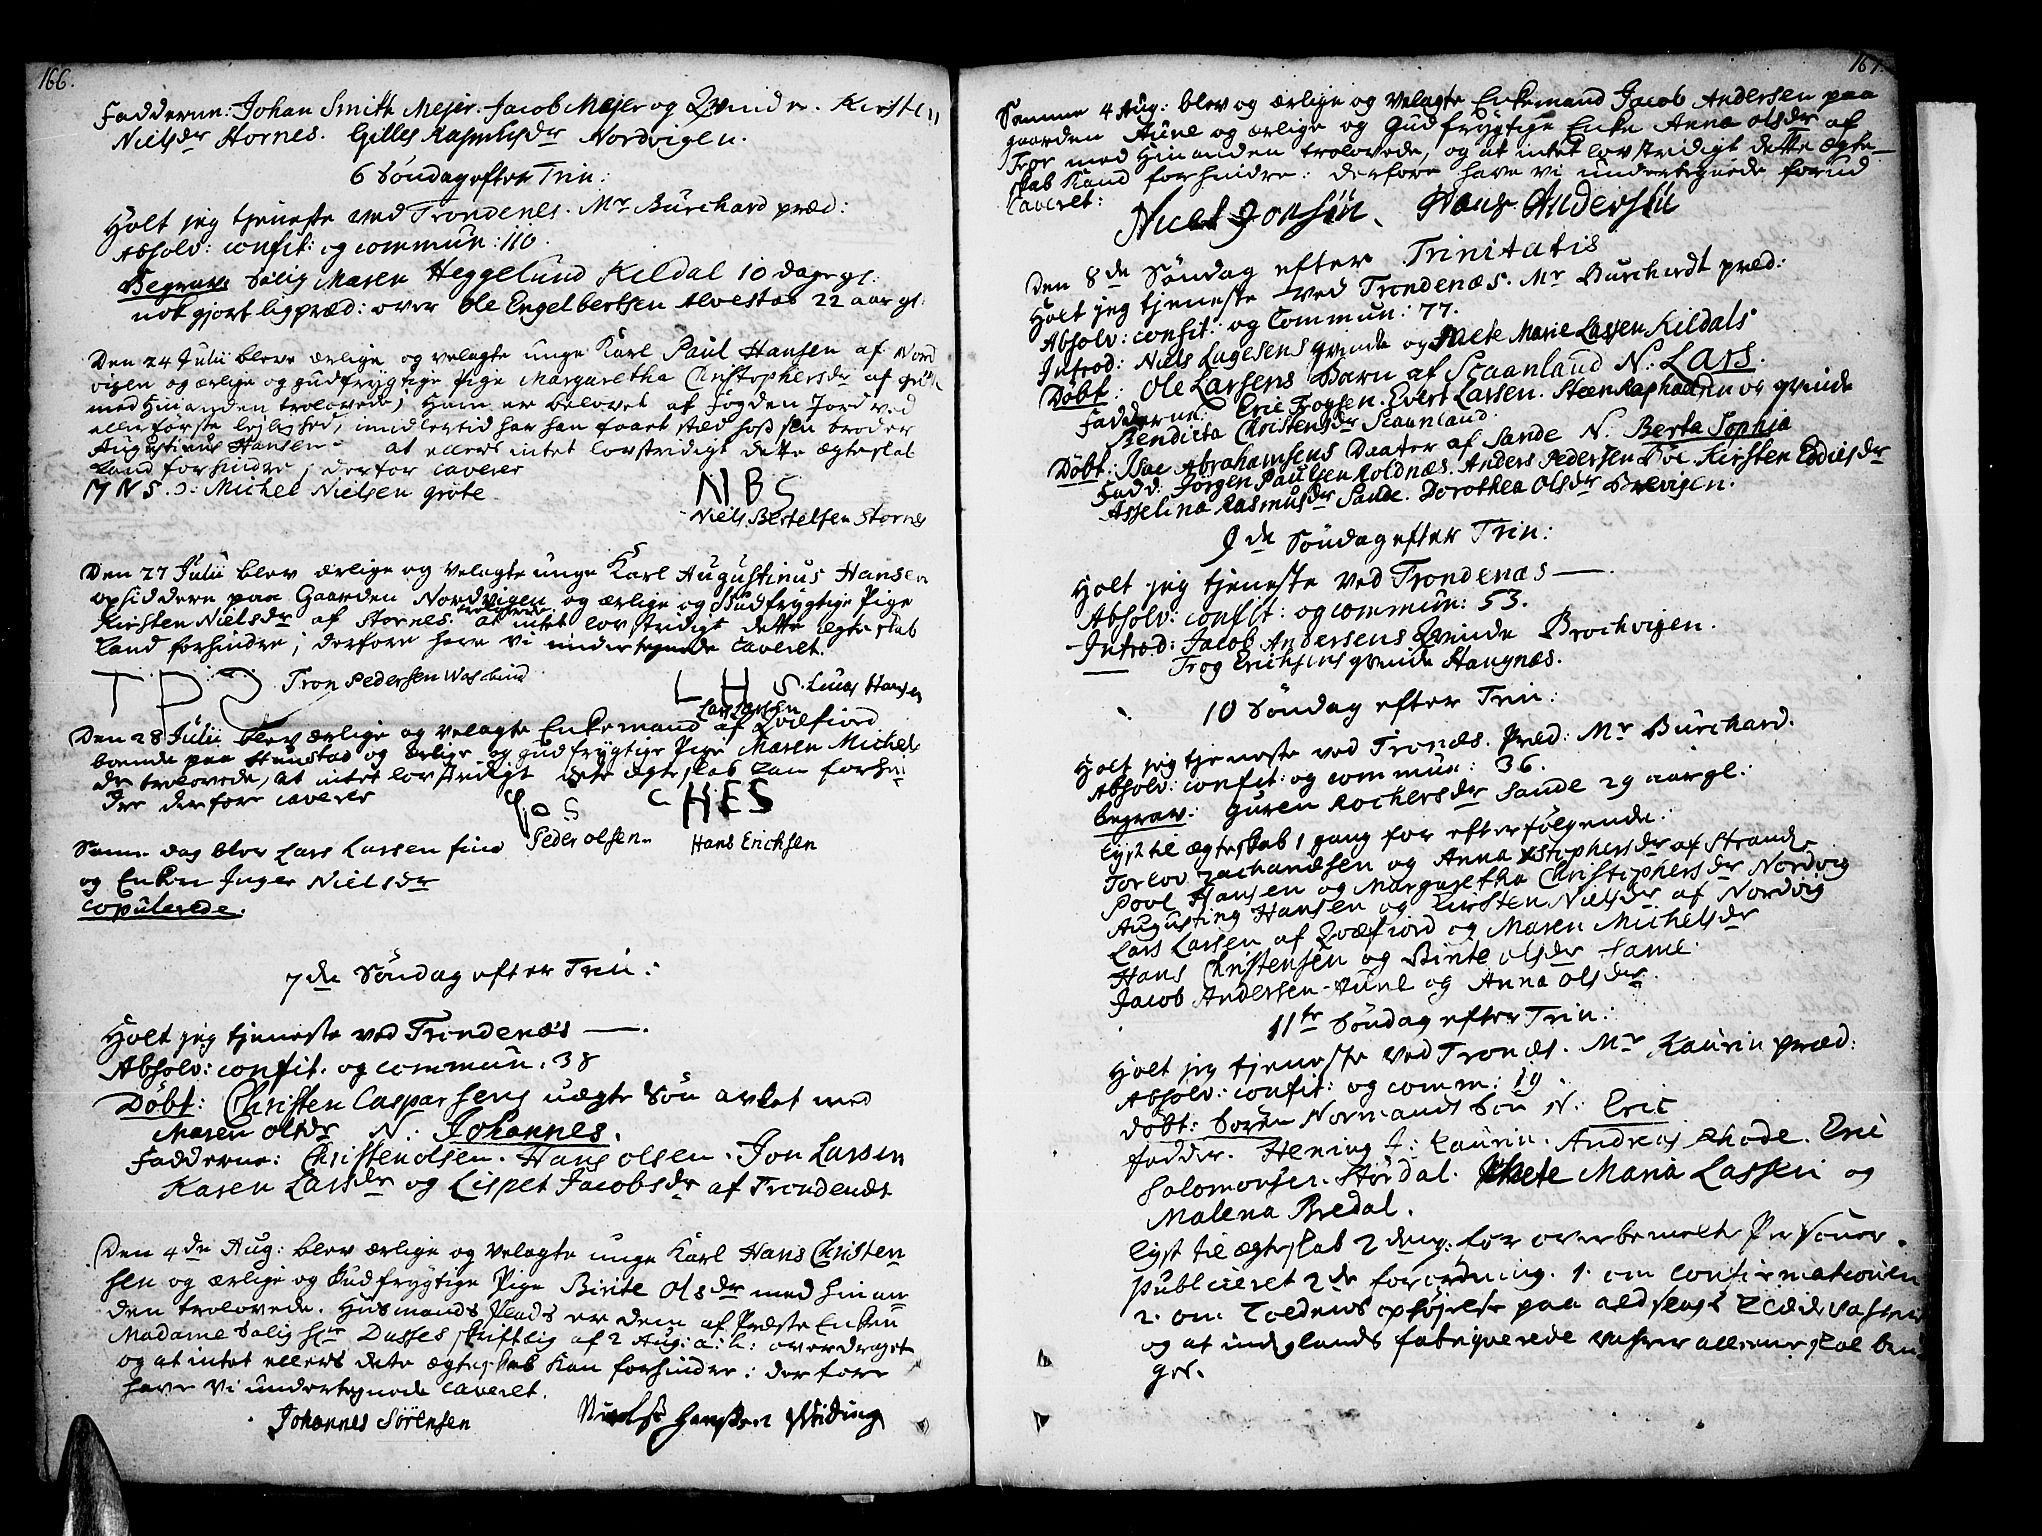 166.
Fadderne: Johan Smith Mejer. Jacob Mejer og Qvinde. Kirsten
Nielsdr Stornes. Gilles Rasmusdr Nordvigen.
6 Söndag efter Trin:
Holt jeg tjeneste ved Trondenes. Mr Burchard præd:
Absolv: confit: og commun: 110.
Begrav: Salig Maren Heggelund Kildal 10 dage gl:
nok gjort ligpræd: over Ole Engelbertsen Alvestad 22 aar gl:
Den 24 Julii bleve ærlige og velagte unge Karl Paul Hansen af Nord
vigen og ærlige og gudfrygtige Pige Margaretha Christophersdr af
med hinanden trolovede, Ham er belovet af Fogden Jord ved
allerførste lejlighed, imidlertid har han faaet stæd hoss sin broder
Augustinus Hansen at ellers intet lovstridigt dette ægteskab
kand forhindre; derfor caverer
M N S. ɔ: Michel Nielsen grøte
N B S
Niels Bertelsen Stornes
Den 27 Julii blev ærlige og velagte unge Karl Augustinus Hansen
opsiddere paa Gaarden Nordvigen og ærlige og Gudfrygtige Pige
Kirsten Nielsdr af Stornes trolovede at intet lovstridigt dette ægteskab
kand forhindre; derfore have vi undertegnede caveret.
T P S Tron Pedersen
L H S. Lucas Hansen
Lars Larsen
Den 28 Julii blev ærlige og velagte Enkemand af Qvæfiord
boende paa Hunstad og ærlige og gudfrygtige Pige Maren Michels
dr trolovede, at intet lovstridigt dete ægteskab kan forhin
dre derfore caverer
P O S
H E S
Peder Olsen
Hans Erichsen
Samme dag blev Lars Larsen
og Enken Inger Nielsdr
copulerede.
7de Söndag efter Trin:
Holt jeg tjeneste ved Trondenæs
Absolv: confit. og commun: 38
Döbt: Christen Caspersens uægte Sön avlet med
Maren Olsdr N: Johannes.
Fadderne: Christen Olsen. Hans Olsen. Jon Larsen
Karen Larsdr og Lispet Jacobsdr af Trondenæs
Den 4de Aug: blev ærlige og Velagte unge Karl Hans Christen
sen og ærlige og Gudfrygtige Pige Birite Olsdr med hinan
den trolovede. Husmands Plads er dem af Præste Enken
Madame Salig Hr Dasses skriftlig af 2 Aug: a: h: overdraget
og at intet ellers dete ægteskab kan forhindre: derfore
have vi undertegnede caveret.
Johannes Sörensen
167.
Samme 4 Aug: blev og ærlige og Velagte Enkemand Jacob Andersen paa
gaarden Aune og ærlige og Gudfrygtige Enke Anna Olsdr af
med Hinanden trolovede, og at intet lovstridigt dette ægte
skab Kand forhindre: derfore have vi undertegnede forud
caveret:
Niels Jonsün. Hans Andersün
Den 8de Söndag efter Trinitatis
Holt jeg tjeneste ved Trondenæs. Mr Burchardt præd:
Absolv: confit: og Commun: 77.
Introd: Niels Lagesens qvinde og Mete Marie Lassen Kildals
Döbt: Ole Larsens Barn af Scaanland N: Lars.
Fadderne: Eric Trogsen. Evert Larsen. Steen Raphaelsen og qvinde
Bendicta Christensdr Scaanland
Döbt: Isac Abrahamsens Daater af Sande N. Berta Sophia
Fadd: Jörgen Paulsen Roldnæs. Anders Pedersen Kirsten Eddisdr
Asselina Rasmusdr Sande. Dorothea Olsdr
9de Söndag efter Trin:
Holt jeg tjeneste ved Trondenæs
Absolv: confit: og commun: 53.
Introd: Jacob Andersens Qvinde Brochvigen.
Trog Erichsens qvinde Haugnæs.
10 Söndag efter Trin:
Holt jeg tjeneste ved Tronæs. Præd: Mr Burchard.
Absolv: confit: og commun: 36.
Begrav: Guren Rochersdr Sande 29 aar gl:
lyst til ægteskab 1 gang for efterfølgende:
Torlov Zachariæsen og Anna Xstophersdr af Strand
Povl Hansen og Margaretha Christophersdr Nordvig
Augusting Hansen og Kirsten Nielsdr af Nordvig
Lars Larsen af Qvæfiord og Maren Michelsdr
Hans Christensen og Birite Olsdr
Jacob Andersen Aune og Anna Olsdr.
11te Söndag efter Trin:
Holt jeg tjeneste ved Tronæs. Mr Kaurin præd:
Absolv: confit: og comm: 19.
döbt: Sören Normands Sön N: Eric
Fadder. Hening J: Kaurin. Andreas Rhode. Eric
Solomonsen. Stördal. Mete Maria Lassen og
Malena Bredal.
lyst til ægteskab 2 dng: for overbemelte Personer.
Publiceret 2de forordning. 1. om Confirmationen
2. om Toldens ophøjelse paa
og at indenlands fabriqverede vahrer allene skal bru
ges.